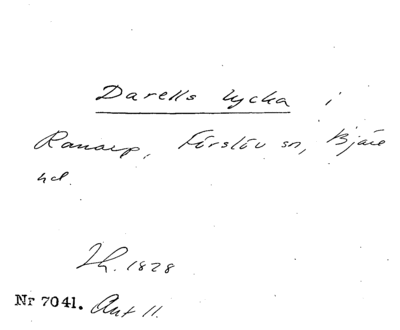 Darells lycka i
Ranarp, Förslöv sn, Bjäre
hd.
Lh. 1828
Nr 7041. Ant 11.